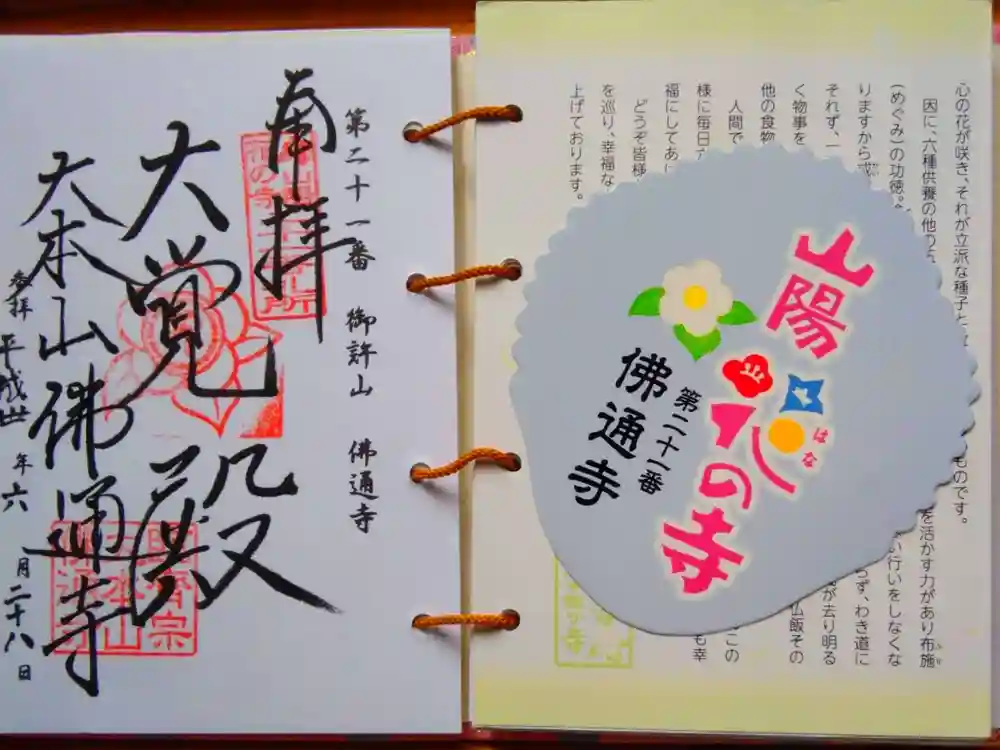 第二十一番 御許山 佛通寺
奉拝
大覚殿
大本山佛通寺
参拝 平成卅年六月二十八日
山陽
花の寺
はな
第二十一番
佛通寺
心の花が咲き、それが立派な種子と
因に、六種供養の他の
(めぐみ)の功徳。
りますから
それぞれ、一
く物事を
他の食物
人間で
様に毎日
福にしてあ
どうぞ皆様
を巡り、幸福な
上げております。
ものです。
を活かす力があり布施
い行いをしなくな
らず、わき道に
が去り明る
仏飯その
この
も幸